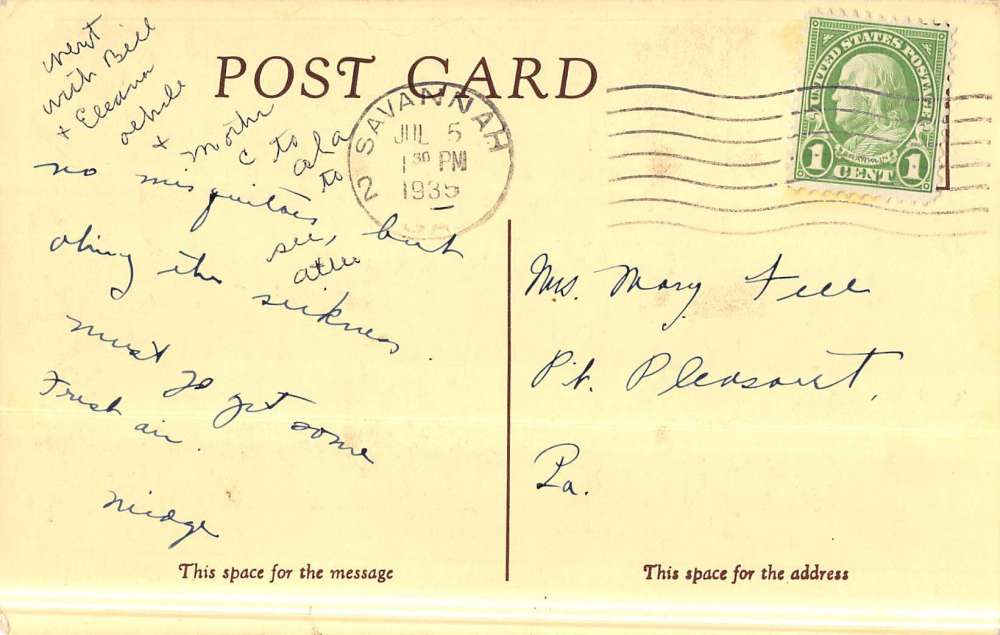 went
with Bill
+
+ Mother
c to
ala
to
POST CARD
SAVANNAH
JUL 5
1 30 PM
1935
2
GA
UNITED STATES POSTAGE
FRANKLIN
1 CENT 1
no misquitoes
see, but
the
sickness
must go get some
Fresh air.
Midge
This space for the message
Mrs. Mary
Pt. Pleasant,
Pa.
This space for the address